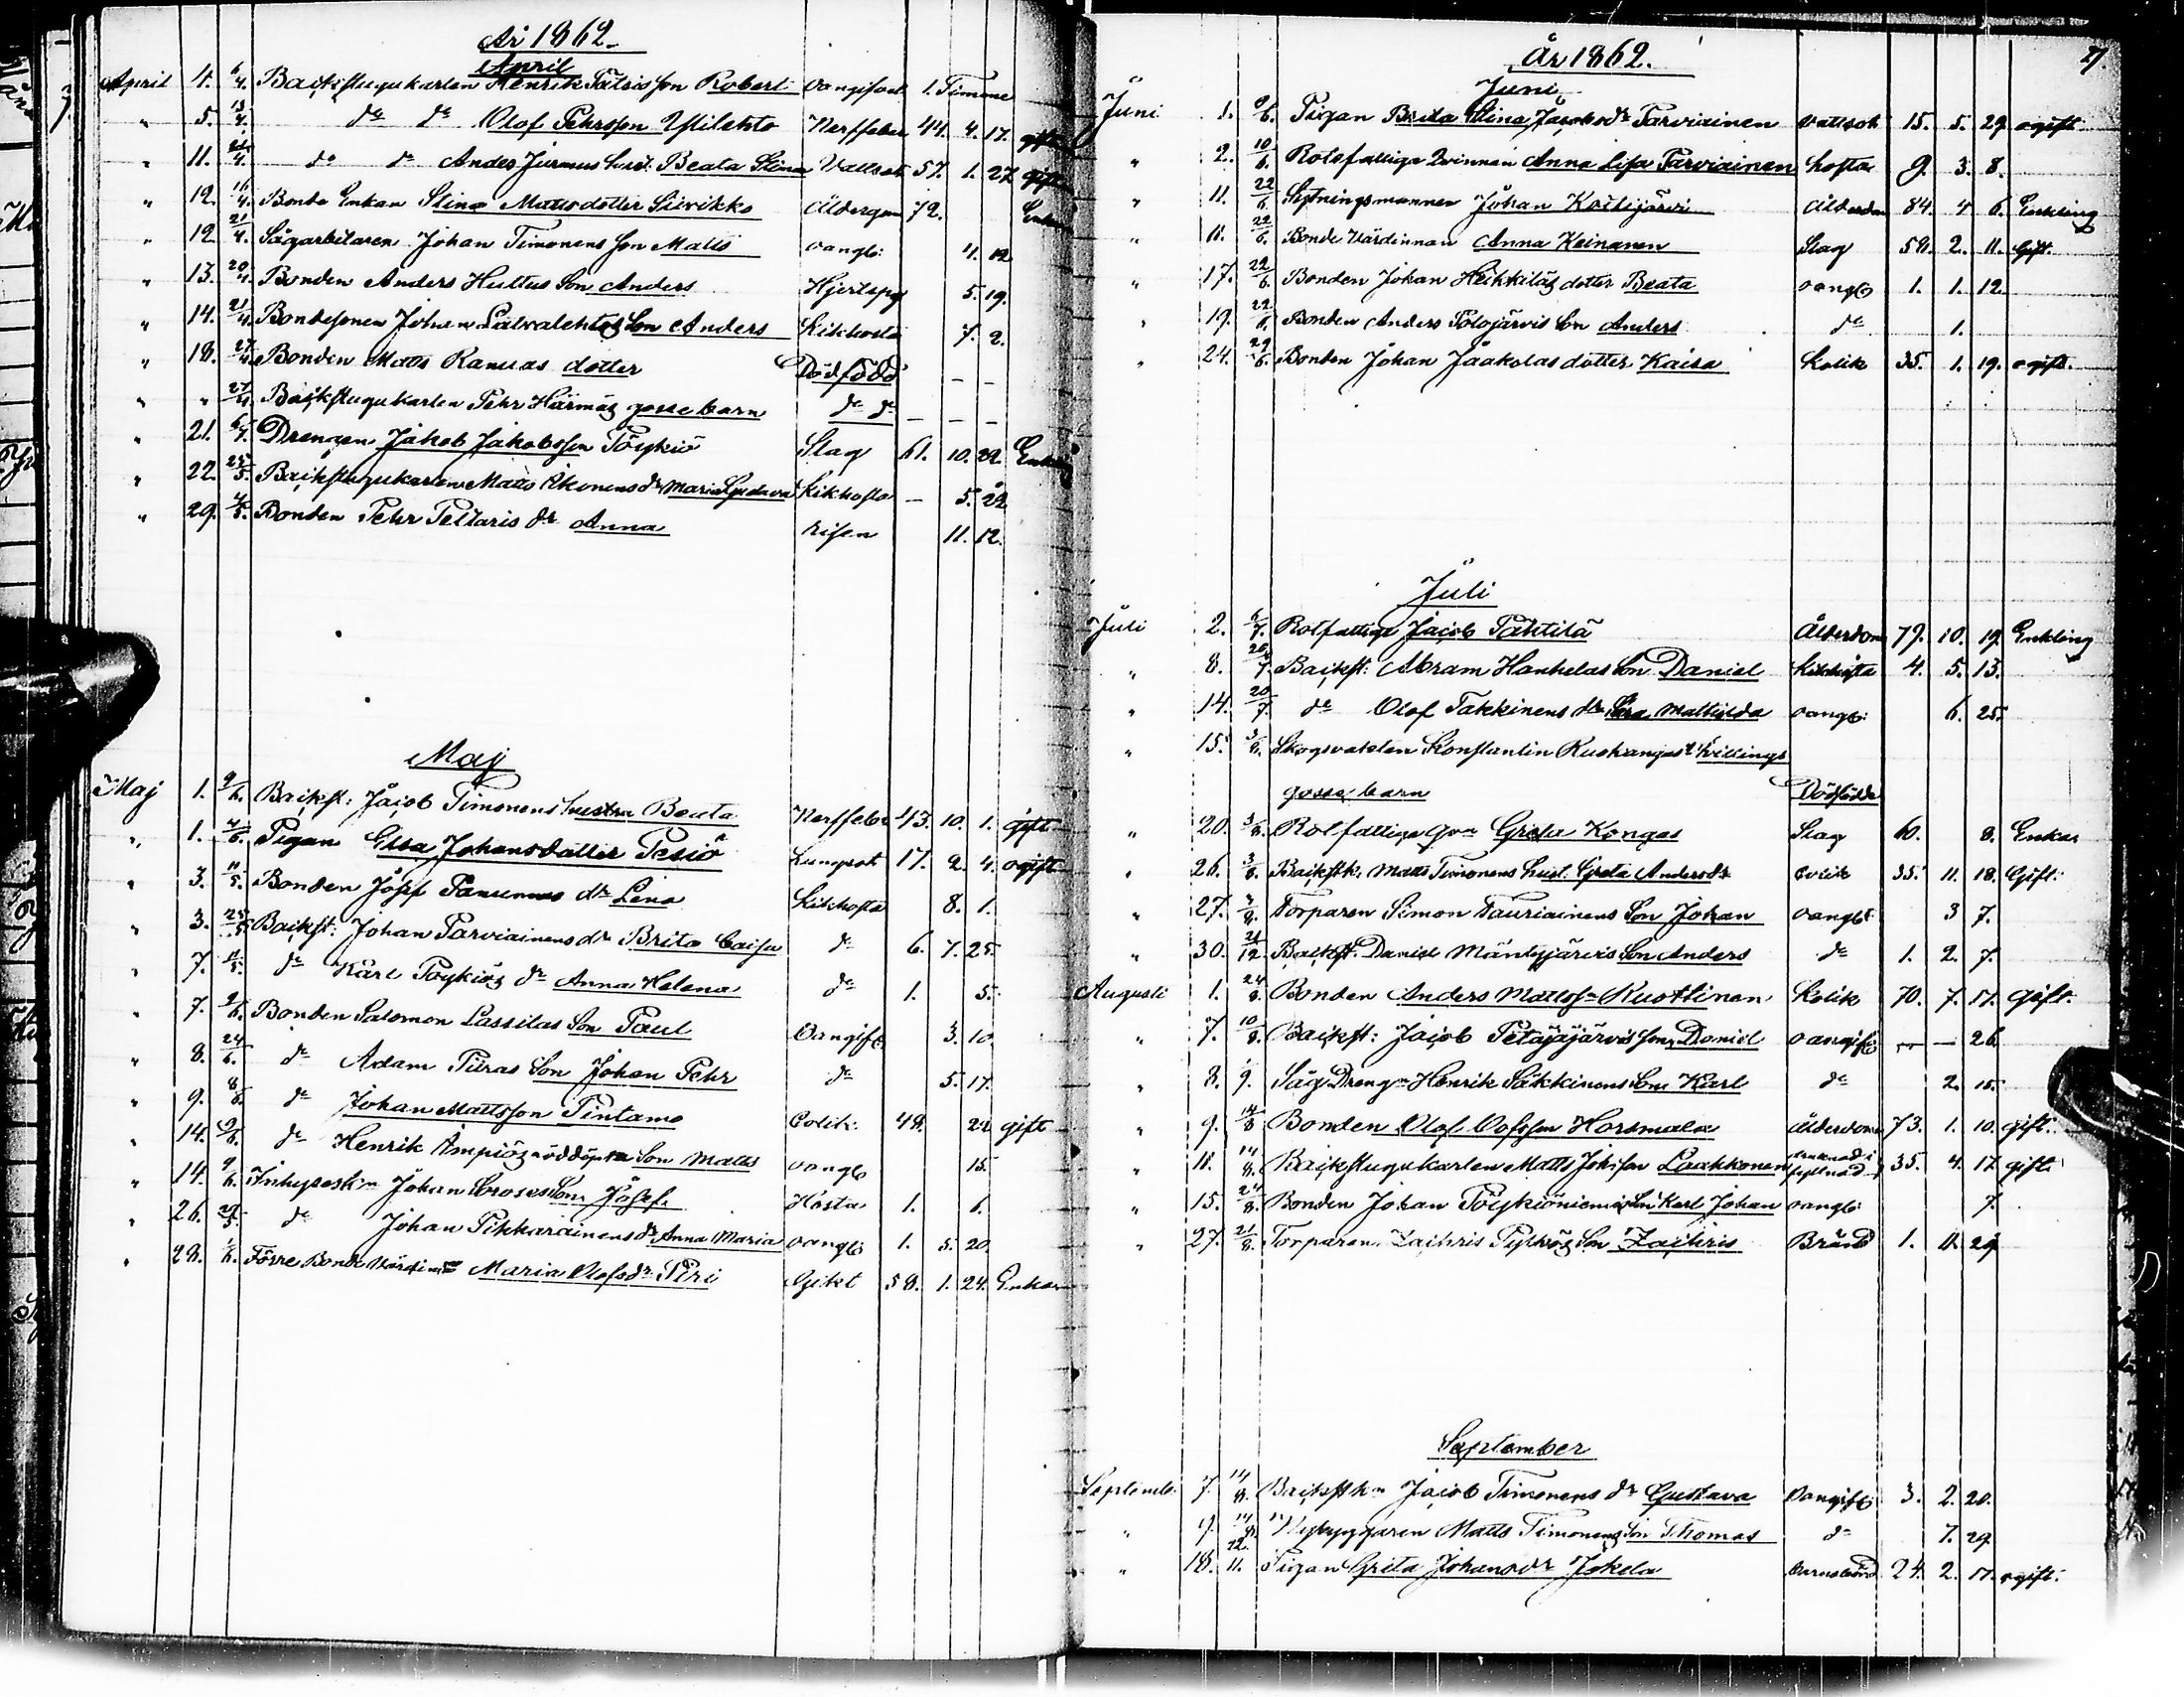 År 1862.
April
April 4. 6/4. Backstugukarlen Henrik Son Robert oangifvet 1. Timme
" 5. 13/4. do do Olof Pehrsson Ylilehto Nerffeber 44. 4. 17. gift
" 11. 21/4. do do Anders Hust: Beata Stina Vattsot 57. 1. 27. gift
" 12. 16/4. Bonde Enkan Stina Mattsdotter Siivikko Ålderdom 72. Enka
" 12. 21/4. Sågarbetaren Johan Timonens Son Matts oangfr: 4. 12
" 13. 20/4. Bonden Anders Huttus Son Anders Hjertspg 5. 19.
" 14. 21/4. Bondesonen Johan Son Anders Kikhosta 7. 2.
" 18. 27/4. Bonden Matts Ranuas dotter Dödfödd – –
" " 27/4. Backstugukarlen Pehr Härmäs gosse barn do do – – –
" 21. 6/7. Drengen Jakob Jakobsson Pöykiö Slag 61. 10. 22. Enkling
" 22. 25/5. Backstugukarlen Matts Ikonens dr Maria Gustava Kikhosta – 5. 22
" 29. 4/5. Bonden Pehr Peltaris dr Anna risen 11. 12.
Maj
Maj 1. 9/6. Backst: Jacob Timonens hustru Beata Nerffeber 43. 10. 1. gift
" 1. 4/6. Pigan Elsa Johansdotter Pesiö Lungsot 17. 2. 4. ogift
" 3. 11/5. Bonden Josef dr Lena Kikhosta 8. 1.
" 3. 25/5. Backst: Johan Parviainens dr Brita Caisa do 6. 7. 25.
" 7. 11/5. do Karl Pöykiös dr Anna Helena do 1. 5.
" 7. 9/6. Bonden Salomon Lassilas Son Paul Oangifv 3. 10.
" 8. 24/6. do Adam Piiras Son Johan Pehr do 5. 17.
" 9. 8/6. do Johan Mattsson Pintamo Colik 48. 22 gift
" 14. 9/6. do Henrik Impiös oddöpta Son Matts oangfr 15.
" 14. 9/6. Johan Son Josef Hosta 1. 1.
" 26. 29/5. do Johan Pikkarainens dr Anna Maria oangfr 1. 5. 20
" 28. 1/6. Förre Bonde Värdin= Maria Olofsdr Piri Gikt 58. 1. 24. Enka
År 1862. 7
Juni
Juni 1. 9/6. Pigan Brita Stina Jacobsdr Parviainen Vattsot 15. 5. 29 ogift
" 2. 10/6. Rotefattiga Qvinnan Anna Lisa Parviainen hosta 9. 3. 8.
" 11. 22/6. Sytningsmannen Johan Koitijärvi Ålderdom 84. 4 6. Enkling
" 11. 22/6. Bonde Värdinnan Anna Keinanen Slag 58. 2. 11. Gift.
" 17. 22/6. Bonden Johan Heikkiläs dotter Beata oangfr 1. 1. 12.
" 19. 22/6. Bonden Anders Polojärvis Son Anders do 1.
" 24. 29/6. Bonden Johan Jaakolas dotter Kaisa Kolik 35. 1. 19. ogift.
Juli
Juli 2. 6/7. Rotfattige Jacob Tahtilä Ålderdom 79. 10. 19. Enkling
" 8. 20/7. Backst: Abram Hankelas Son Daniel Kikhosta 4. 5. 13.
" 14. 20/7. do Olof Takkinens dr Mathilda oangfr: 6. 25.
" 15. 3/8. Skogsvakten Konstantin Ruokangas's tvillings
gosse barn Dödfödde
" 20. 3/8. Rotfattige qvn Greta Kongas Slag 60. 8. Enka
" 26. 3/8. Backstk. Matts Timonens hust. Greta Andersdr Colik 35. 11. 18. Gift.
" 27. 3/8. Torparen Simon Tauriainens Son Johan oangfr 3 7.
" 30. 21/12. Backst. Daniel Mäntyjärvis Son Anders do 1. 2. 7.
Augusti 1. 24/8. Bonden Anders Mattss Ruottinen Kolik 70. 7. 17. Gift.
" 7. 10/8. Backst: Jacob Petäjäjärvis Son Daniel oangifv – – 26.
" 8. 9. Såg Dreng Henrik Säkkinens Son Karl do 2. 15.
" 9. 14/8 Bonden Olof Olofsson Horsmala Ålderdom 73. 1. 10. gift.
" 11. 14/8. Backstugukarlen Matts Johsson Laakkonen 35. 4. 17. gift.
" 15. 24/8. Bonden Johan Pöykiöniemis Son Karl Johan oangfr 7.
" 27. 21/8. Torparen Zachris Son Zachris Bråd 1. 11. 29
September
Septemb. 7. 14/8. Backstkn Jacob Timonens dr Gustava Oangifv 3. 2. 20.
" 9. 14/9 Nybyggaren Matts Timonens Son Thomas do 7. 29.
" 18. 22/11. Pigan Greta Johansdr Jokela Barnsbörd 24. 2. 17. ogift.